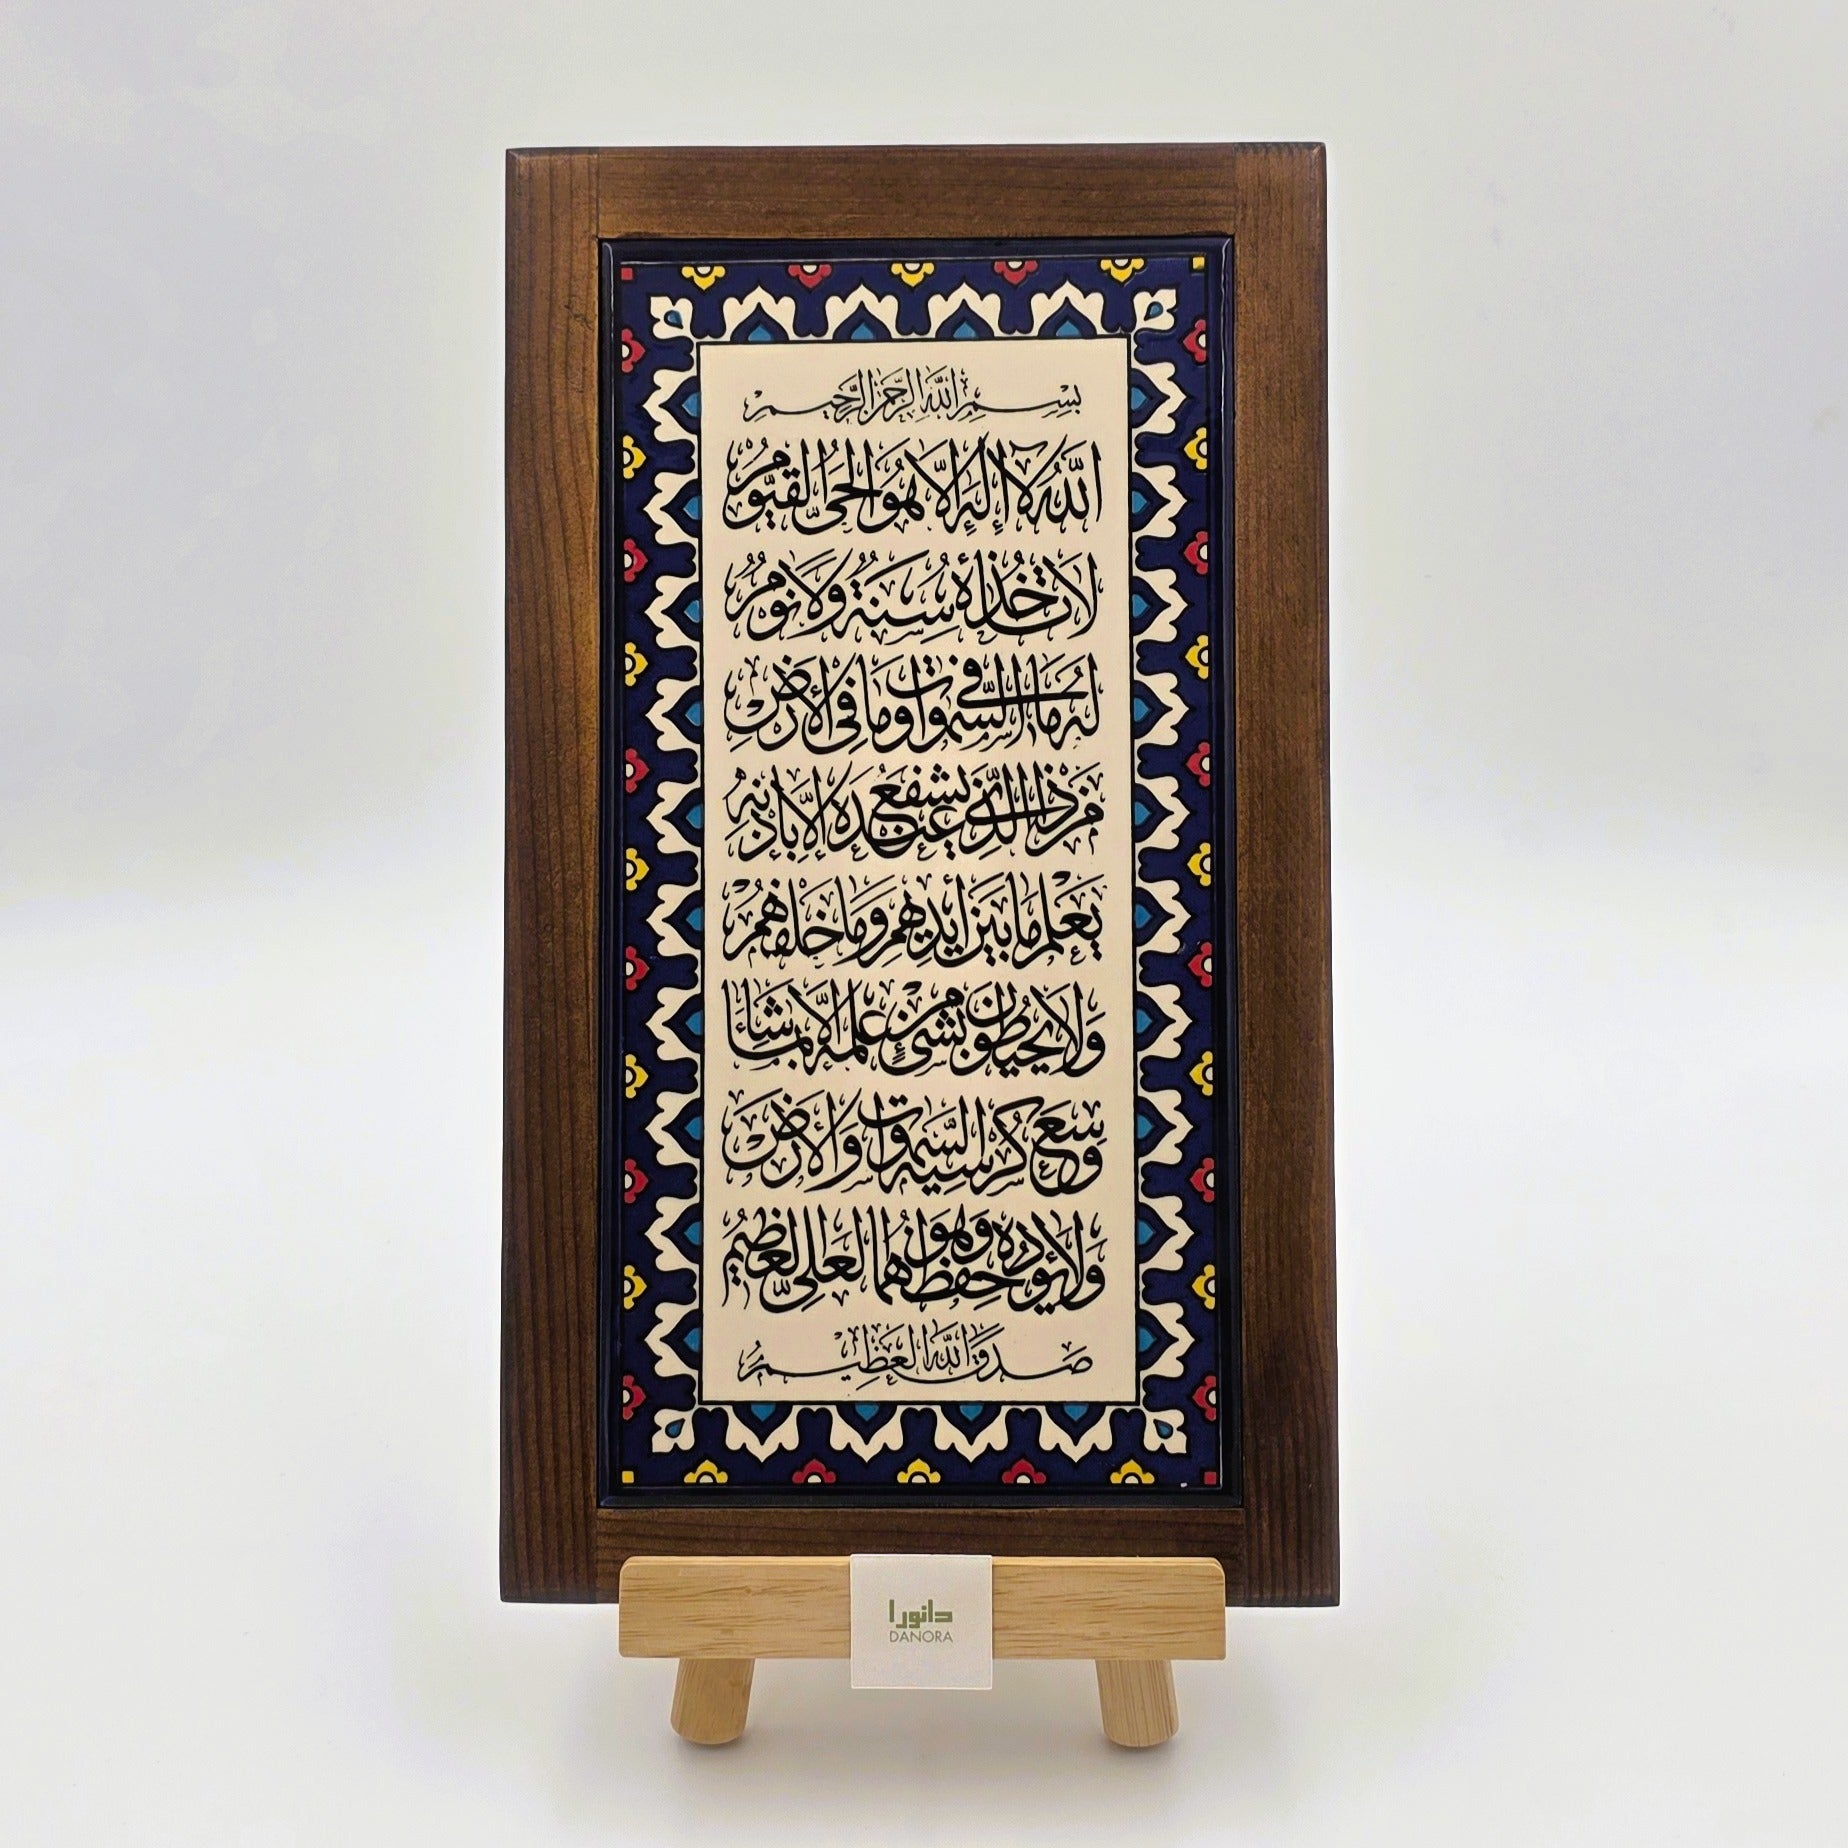 بِسْمِ اللَّهِ الرَّحْمَنِ الرَّحِيمِ
اللَّهُ لَا إِلَهَ إِلَّا هُوَ الْحَيُّ الْقَيُّومُ
لَا تَأْخُذُهُ سِنَةٌ وَلَا نَوْمٌ
لَهُ مَا فِي السَّمَوَاتِ وَمَا فِي الْأَرْضِ
مَنْ ذَا الَّذِي يَشْفَعُ عِنْدَهُ إِلَّا بِإِذْنِهِ
يَعْلَمُ مَا بَيْنَ أَيْدِيهِمْ وَمَا خَلْفَهُمْ
وَلَا يُحِيطُونَ بِشَيْءٍ مِنْ عِلْمِهِ إِلَّا بِمَا شَاءَ
وَسِعَ كُرْسِيُّهُ السَّمَوَاتِ وَالْأَرْضَ
وَلَا يَؤُدُهُ حِفْظُهُمَا وَهُوَ الْعَلِيُّ الْعَظِيمُ
صَدَقَ اللَّهُ الْعَظِيمُ
دانورا
DANORA